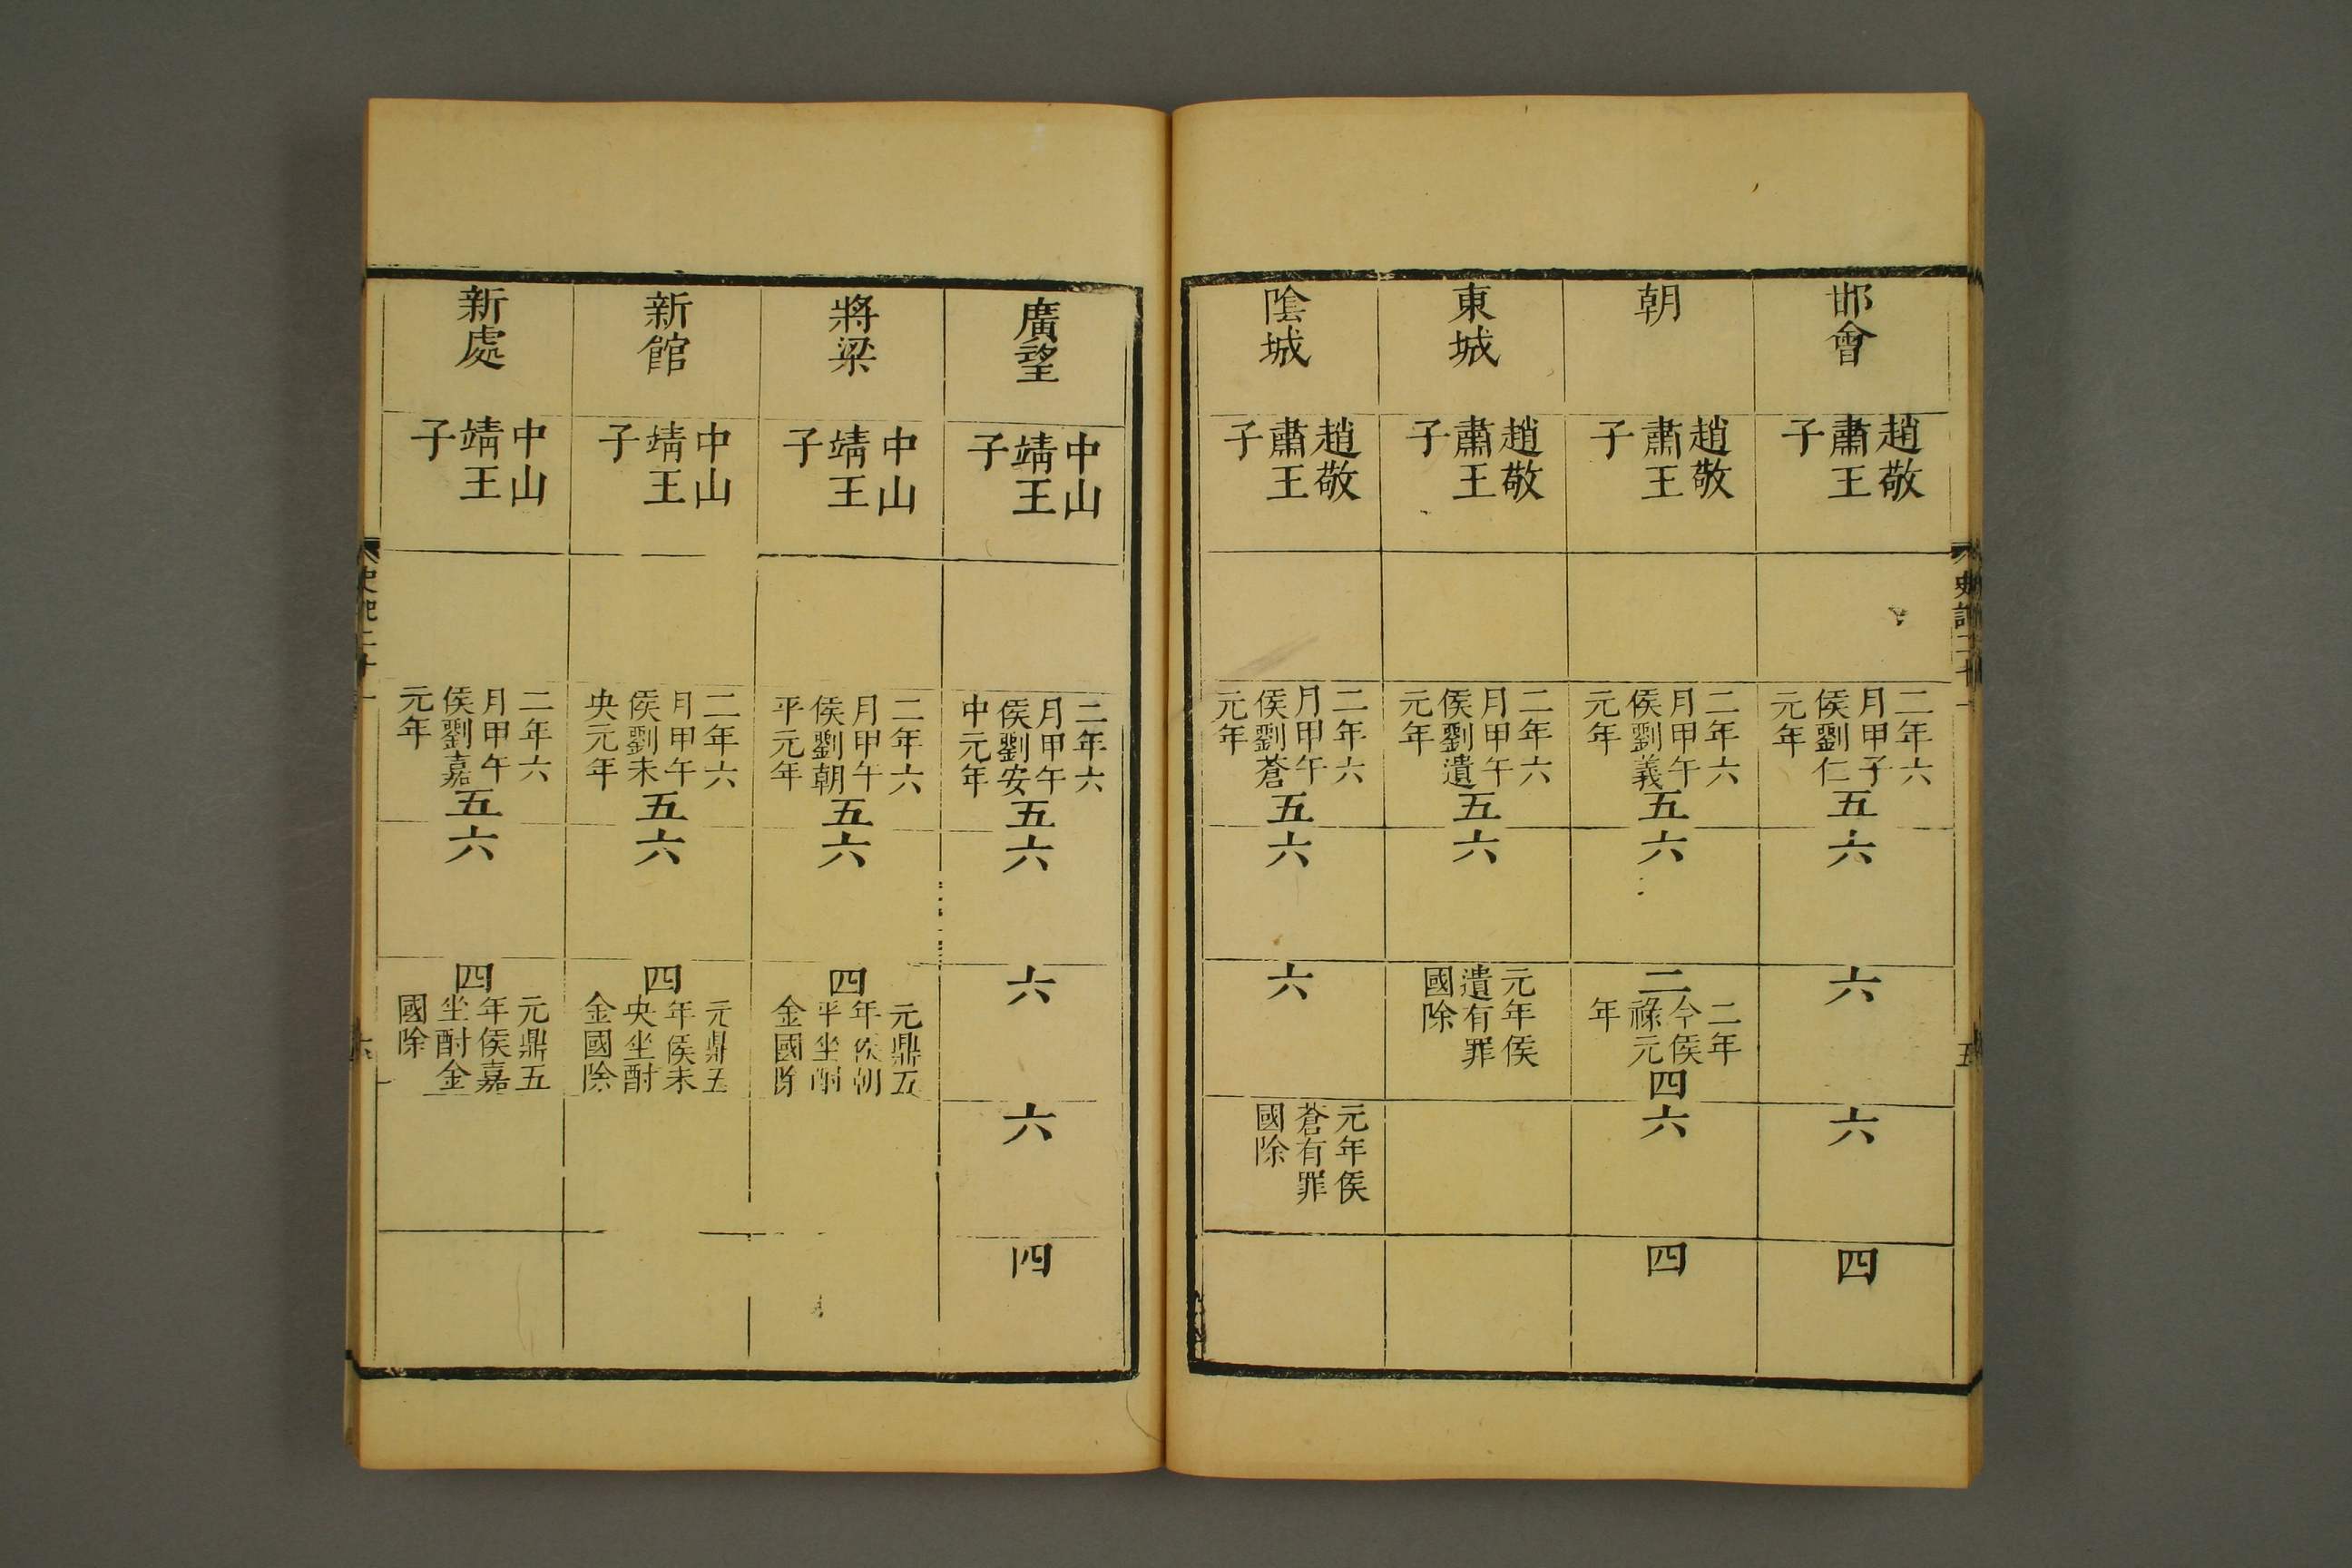 邯會
趙敬
肅王
子
二年六
月甲子
侯劉仁
元年
五
六
六
六
四
朝
趙敬
肅王
子
二年六
月甲午
侯劉義
元年
五
六
二
二年
今侯
祿元
年
四
六
四
東城
趙敬
肅王
子
二年六
月甲午
侯劉遺
元年
五
六
元年侯
遺有罪
國除
陰城
趙敬
肅王
子
二年六
月甲午
侯劉蒼
元年
五
六
六
元年侯
蒼有罪
國除
廣望
中山
靖王
子
二年六
月甲午
侯劉安
中元年
五
六
六
六
四
將梁
中山
靖王
子
二年六
月甲午
侯劉朝
平元年
五
六
四
元鼎五
年侯朝
平坐酎
金國除
新館
中山
靖王
子
二年六
月甲午
侯劉未
央元年
五
六
四
元鼎五
年侯未
央坐酎
金國除
新處
中山
靖王
子
二年六
月甲午
侯劉嘉
元年
五
六
四
元鼎五
年侯嘉
坐酎金
國除